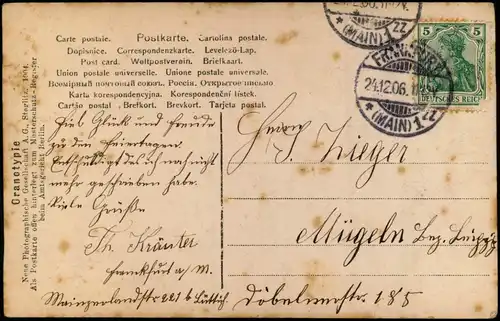 Carte postale. Postkarte. Cartolina postale.
Dopisnice. Correspondenzkarte. Levelező-Lap.
Post card. Weltpostverein. Briefkaart.
Union postale universelle. Unione postale universale.
Всемірный почтовый союзъ. Россія. Открытое письмо
Karta korespondencyjna. Korespondenční listek.
Cartão postal. Brefkort. Brevkort. Tarjeta postal.
Viel Glück und Freude
zu den Feiertagen.
Entschuldigt daß ich noch nicht
mehr geschrieben habe.
Viele Grüße
Th. Kräuter
Frankfurt a/M.
Mainzerlandstr 221 b Lüttich
Herrn
Zieger
Mügeln Bez. Leipzig
Döbelnerstr 185
Oranotypie
Neue Photographische Gesellschaft A.G., Steglitz 1904.
Als Postkarte offen hinterlegt zum Musterschutz-Register
beim Amtsgericht Berlin.
(MAIN) 1 ZZ
FRANKFURT
24.12.06.
* (MAIN) 1 ZZ
5 5
DEUTSCHES REICH